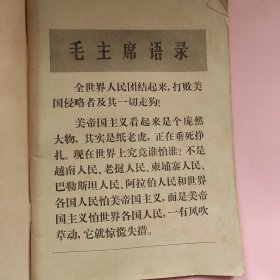 毛主席语录
全世界人民团结起来，打败美
国侵略者及其一切走狗！
美帝国主义看起来是个庞然
大物，其实是纸老虎，正在垂死挣
扎。现在世界上究竟谁怕谁？不是
越南人民、老挝人民、柬埔寨人民、
巴勒斯坦人民、阿拉伯人民和世界
各国人民怕美帝国主义，而是美帝
国主义怕世界各国人民，一有风吹
草动，它就惊慌失措。